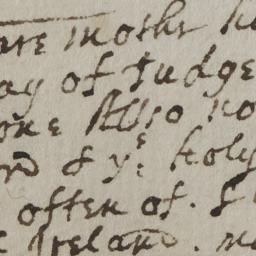 are mothr
ay of Judge
one Also
& yͤ: holy
often of.
Ireland.